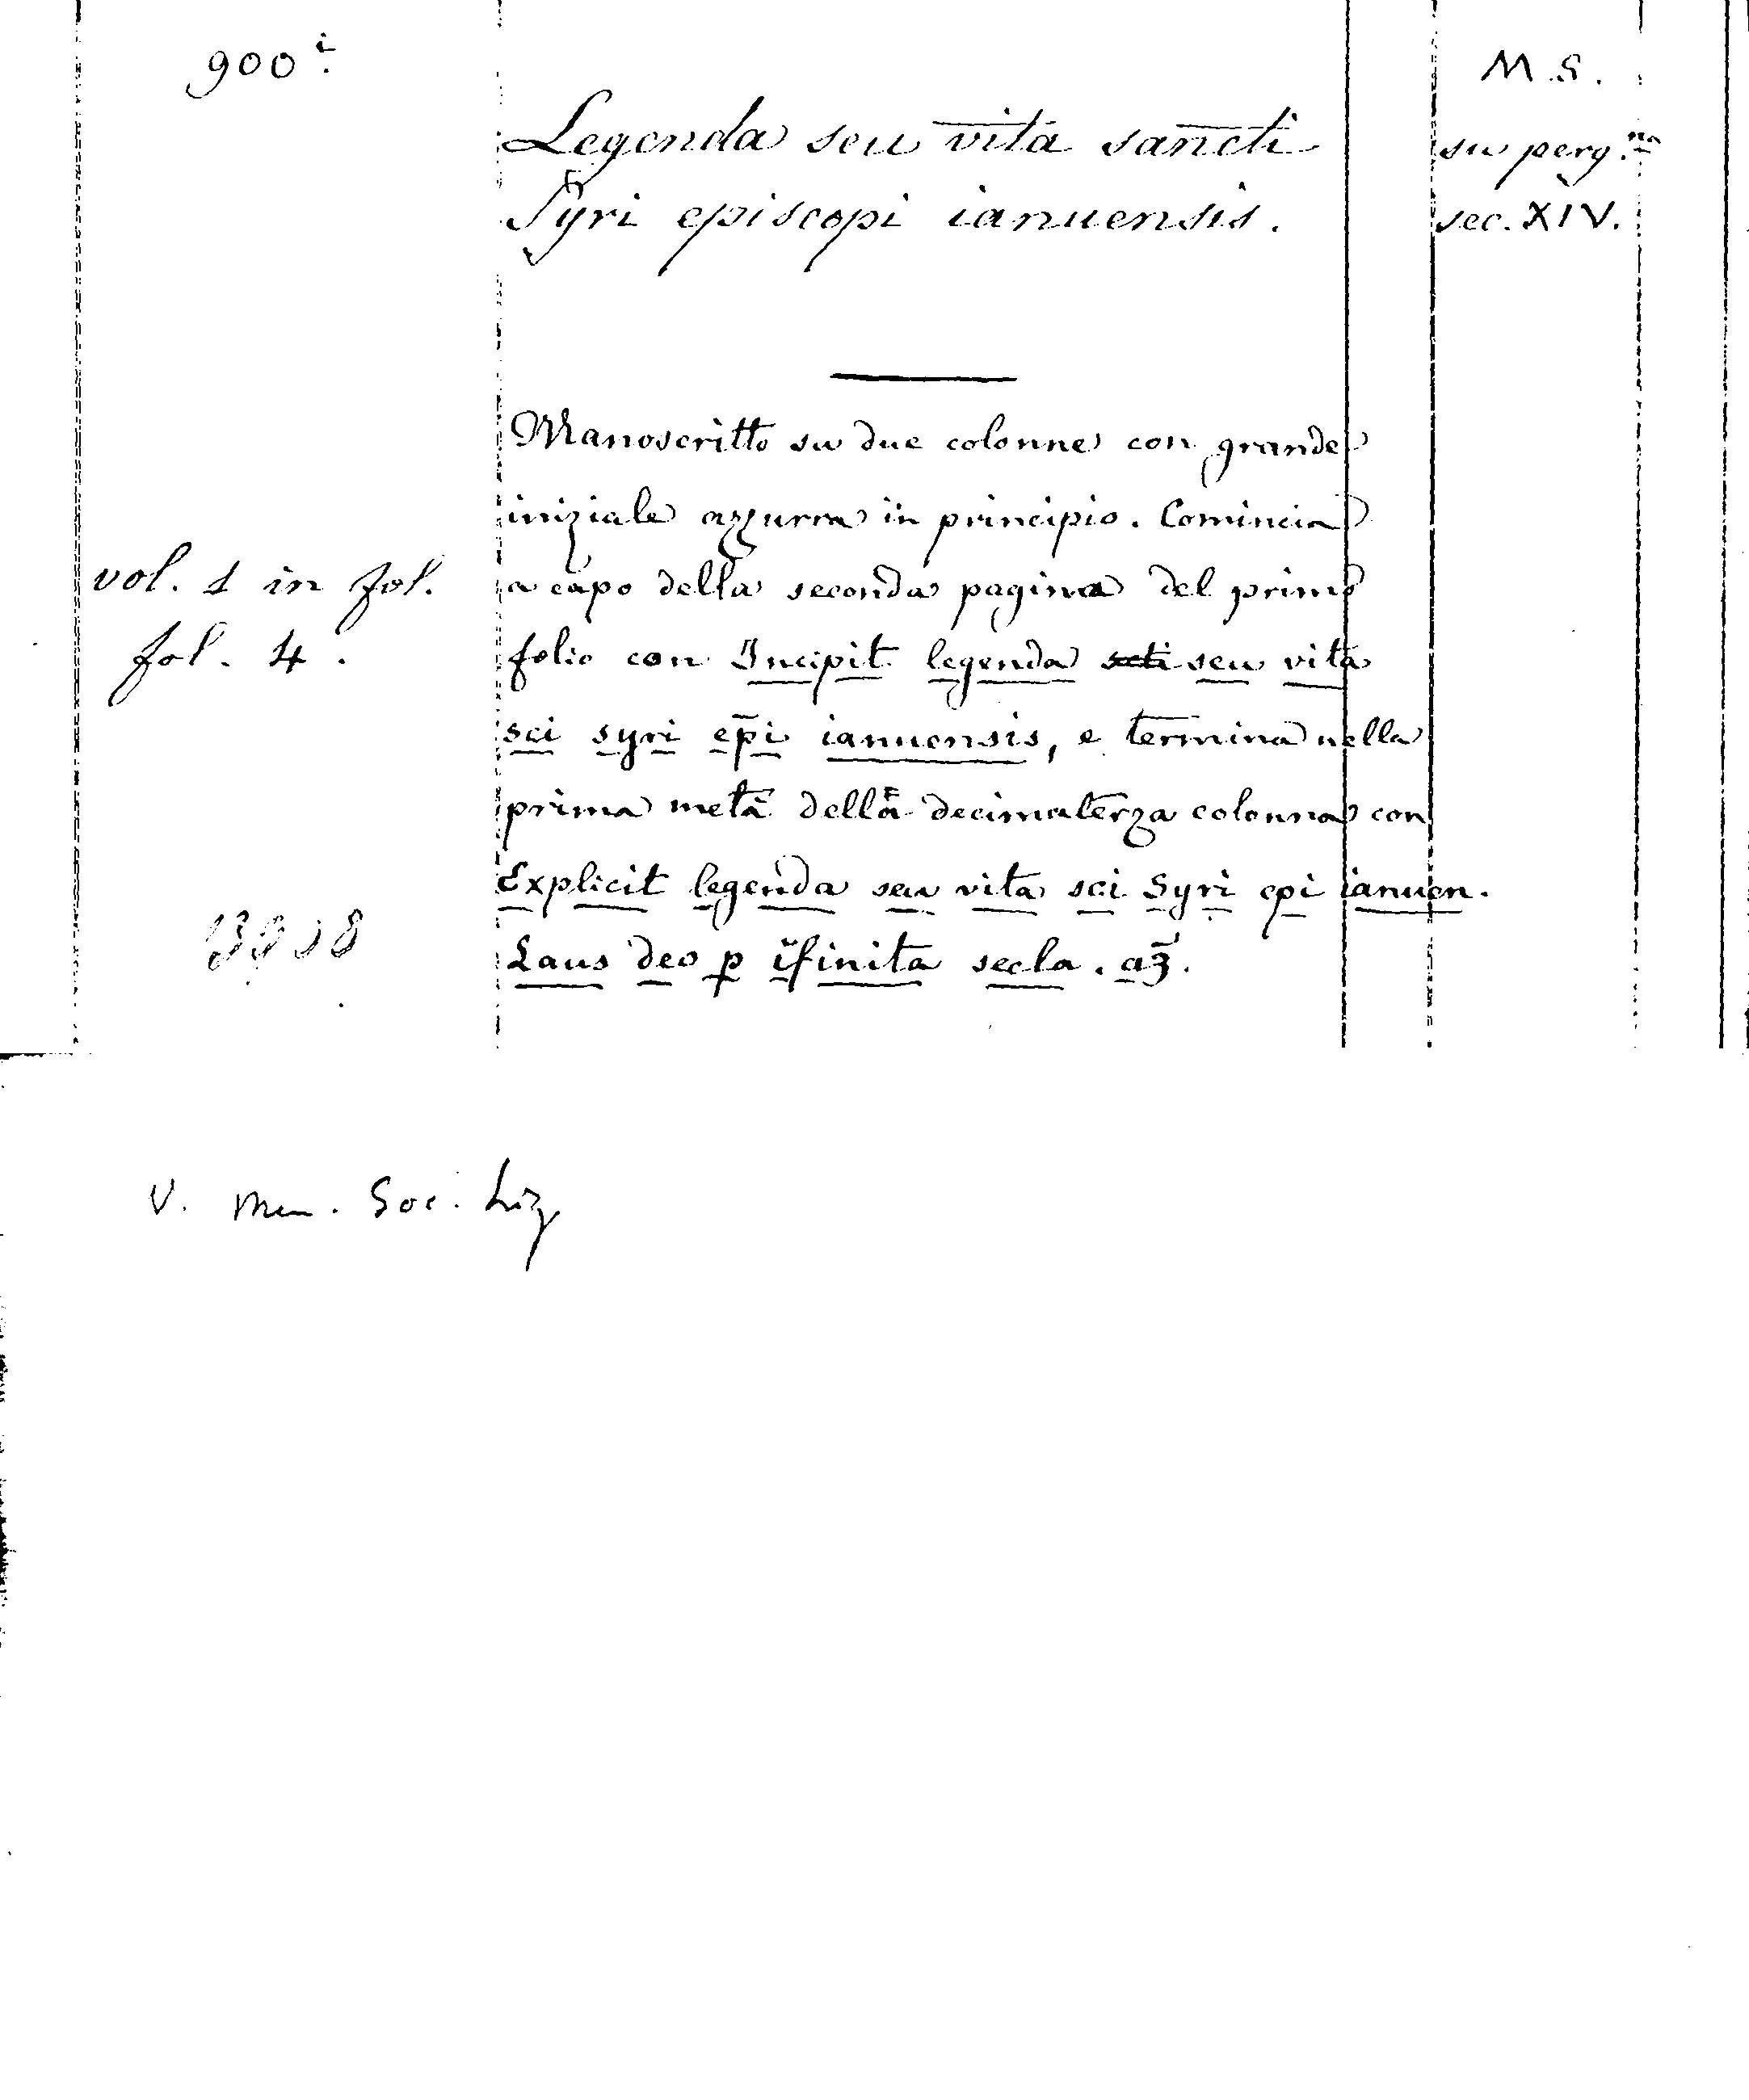 900.i
M.S.
Legenda seu vita sancti
su perg.na
Syri episcopi ianuensis.
sec. XIV.
Manoscritto su due colonne con grande
iniziale azzurra in principio. Comincia
vol. 1 in fol.
a capo della seconda pagina del primo
fol. 4.
folio con Incipit legenda scti seu vita
sci syri ep̄i ianuensis, e termina nella
prima metà della decimaterza colonna con
Explicit legenda seu vita sci Syri epi ianuen.
Laus deo p īfinita secla. aȝ̄.
V. Mem. Soc. Lig